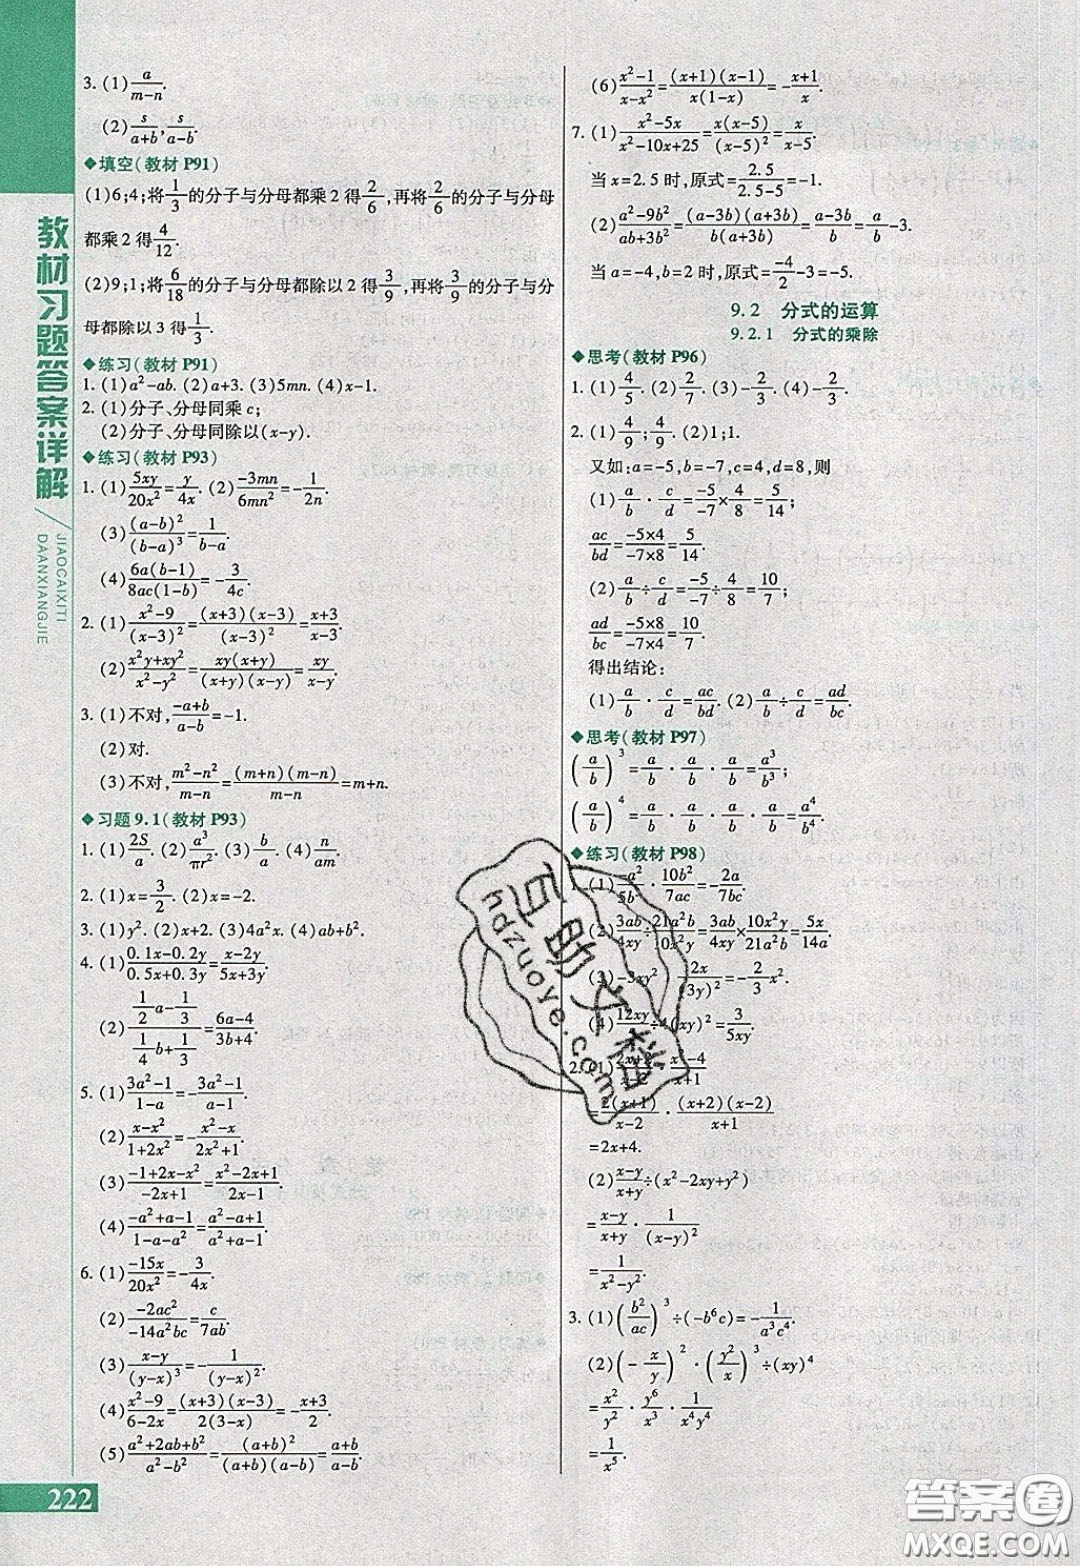 教材习题答案详解
JIAOCAIXITI
DAANXIANGJIE
3. (1) a/(m-n).
(2) s/(a+b), s/(a-b).
◆填空(教材 P91)
(1)6;4;将 1/3 的分子与分母都乘 2 得 2/6,再将 2/6 的分子与分母
都乘 2 得 4/12.
(2)9;1;将 6/18 的分子与分母都除以 2 得 3/9,再将 3/9 的分子与分
母都除以 3 得 1/3.
◆练习(教材 P91)
1. (1)a²-ab. (2)a+3. (3)5mn. (4)x-1.
2. (1)分子、分母同乘 c;
(2)分子、分母同除以(x-y).
◆练习(教材 P93)
1. (1) 5xy/20x² = y/4x. (2) -3mn/6mn² = -1/2n.
(3) (a-b)²/(b-a)³ = 1/(b-a).
(4) 6a(b-1)/8ac(1-b) = -3/4c.
2. (1) (x²-9)/(x-3)² = (x+3)(x-3)/(x-3)² = (x+3)/(x-3).
(2) (x²y+xy²)/(x²-y²) = xy(x+y)/(x+y)(x-y) = xy/(x-y).
3. (1)不对, (-a+b)/(a-b) = -1.
(2)对.
(3)不对, (m²-n²)/(m-n) = (m+n)(m-n)/(m-n) = m+n.
◆习题 9.1(教材 P93)
1. (1) 2S/a. (2) a³/πr². (3) b/a. (4) n/am.
2. (1)x=3/2. (2)x=-2.
3. (1)y². (2)x+2. (3)4a²x. (4)ab+b².
4. (1) (0.1x-0.2y)/(0.5x+0.3y) = (x-2y)/(5x+3y).
(2) (1/2 a - 1/3)/(1/4 b + 1/3) = (6a-4)/(3b+4).
5. (1) (3a²-1)/(1-a) = -(3a²-1)/(a-1).
(2) (x-x²)/(1+2x²) = -(x²-x)/(2x²+1).
(3) (-1+2x-x²)/(-2x+1) = (x²-2x+1)/(2x-1).
(4) (-a²+a-1)/(1-a-a²) = (a²-a+1)/(a²+a-1).
6. (1) -15x/20x² = -3/4x.
(2) -2ac²/-14a²bc = c/7ab.
(3) (x-y)/(y-x)³ = -1/(y-x)².
(4) (x²-9)/(6-2x) = (x+3)(x-3)/2(3-x) = -(x+3)/2.
(5) (a²+2ab+b²)/(a²-b²) = (a+b)²/(a+b)(a-b) = (a+b)/(a-b).
222
(6) (x²-1)/(x-x²) = (x+1)(x-1)/x(1-x) = -(x+1)/x.
7. (1) (x²-5x)/(x²-10x+25) = x(x-5)/(x-5)² = x/(x-5).
当 x=2.5 时,原式= 2.5/(2.5-5) = -1.
(2) (a²-9b²)/(ab+3b²) = (a-3b)(a+3b)/b(a+3b) = (a-3b)/b = a/b - 3.
当 a=-4,b=2 时,原式= -4/2 - 3 = -5.
9.2 分式的运算
9.2.1 分式的乘除
◆思考(教材 P96)
1. (1) 4/5. (2) 2/7. (3) -2/3. (4) -2/3.
2. (1) 4/9; 4/9. (2)1;1.
又如:a=-5,b=-7,c=4,d=8,则
(1) a/b · c/d = -5/-7 × 4/8 = 5/14;
ac/bd = (-5×4)/(-7×8) = 5/14.
(2) a/b ÷ c/d = -5/-7 ÷ 4/8 = 10/7;
ad/bc = (-5×8)/(-7×4) = 10/7.
得出结论:
(1) a/b · c/d = ac/bd. (2) a/b ÷ c/d = ad/bc.
◆思考(教材 P97)
(a/b)³ = a/b · a/b · a/b = a³/b³;
(a/b)⁴ = a/b · a/b · a/b · a/b = a⁴/b⁴.
◆练习(教材 P98)
1. (1) a²/5b² · 10b²/7ac = -2a/7bc.
(2) 3ab/4xy ÷ 21a²b/10x²y = 3ab/4xy × 10x²y/21a²b = 5x/14a.
(3) -3xy² · 2x/(3y)² = -2/3 x².
(4) 12xy/ ÷4(xy)² = 3/5xy.
2. (1) (2x+2)/(x-2) · (x²-4)/(x+1)
= 2(x+1)/(x-2) · (x+2)(x-2)/(x+1)
=2x+4.
(2) (x-y)/(x+y) ÷(x²-2xy+y²)
= (x-y)/(x+y) · 1/(x-y)²
= 1/(x²-y²).
3. (1) (b²/ac)³ ÷(-b⁶c) = -1/a³c⁴.
(2) (-x/y)² · (y²/x)³ ÷(xy)⁴
= x²/y² · y⁶/x³ · 1/x⁴y⁴
= 1/x⁵.
百助文档
hdzuoye.com
答案圈
MXQE.COM